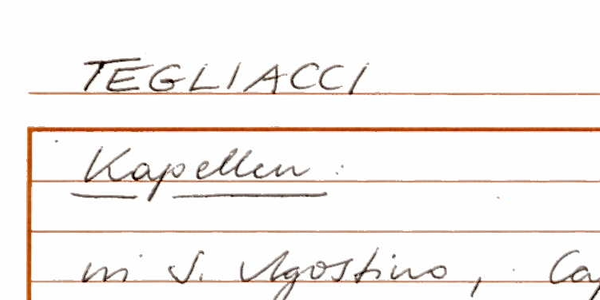 TEGLIACCI
Kapellen :
in S. Agostino,